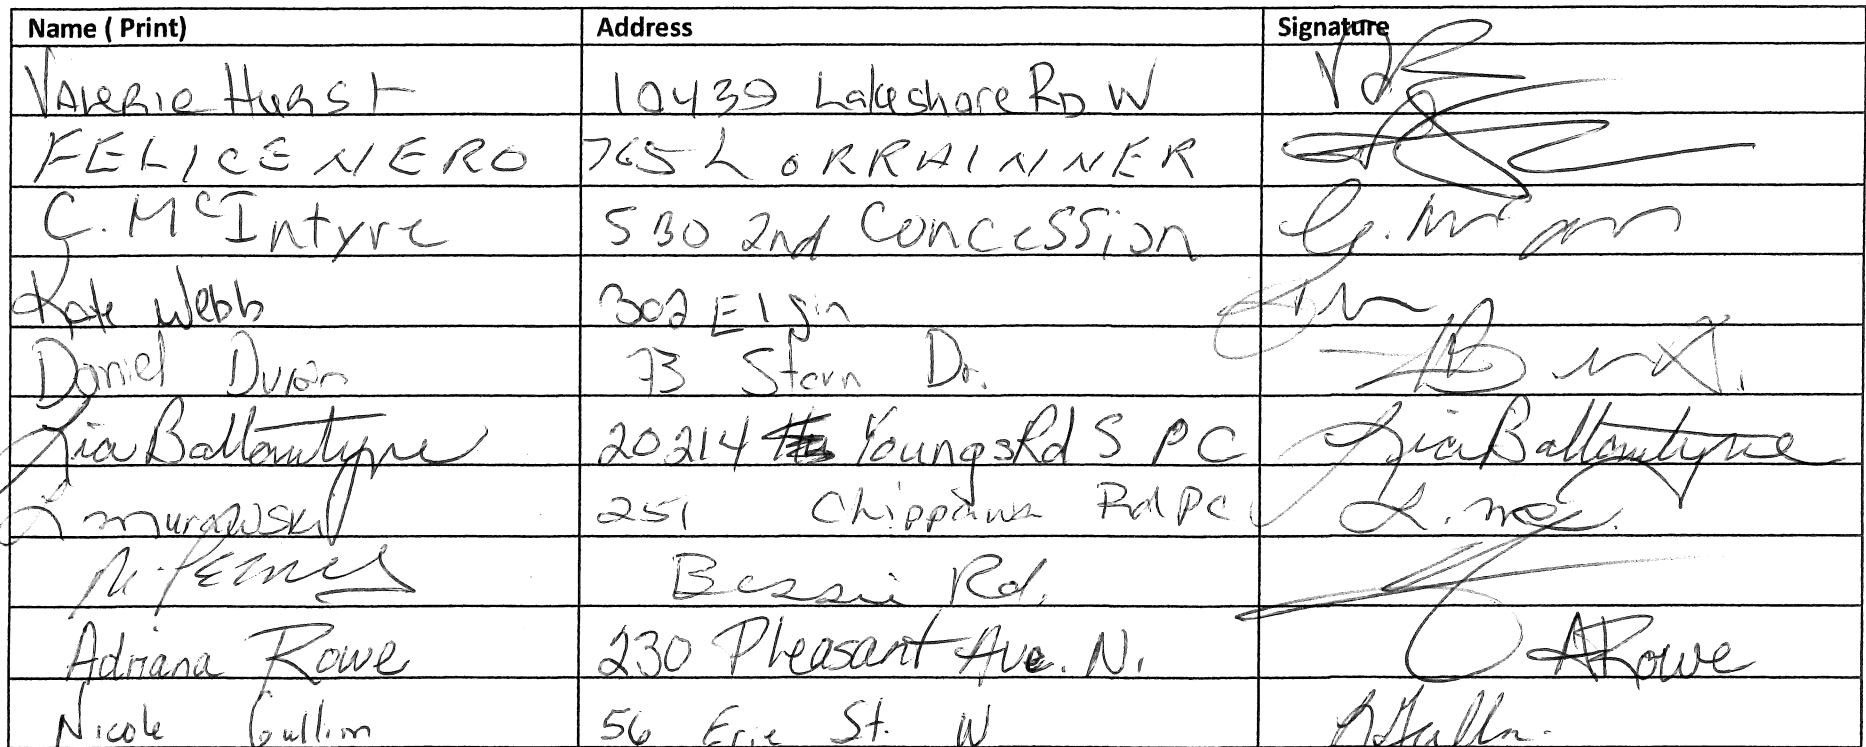 Name ( Print) Address Signature
Valerie Hurst 10439 Lakeshore RD W
FELICE NERO 765 LORRHINNER
C. McIntyre 530 2nd Concession
Kate Webb 302 Elgin
Daniel 73 Dr.
Lia Ballantyne 20214 Youngs Rd S P C Lia Ballantyne
L Murawski 251 Chippawa Rd PC
Bessie Rd.
Adriana Rowe 230 Pleasant Ave. N. A Rowe
Nicole 56 Erie St. W